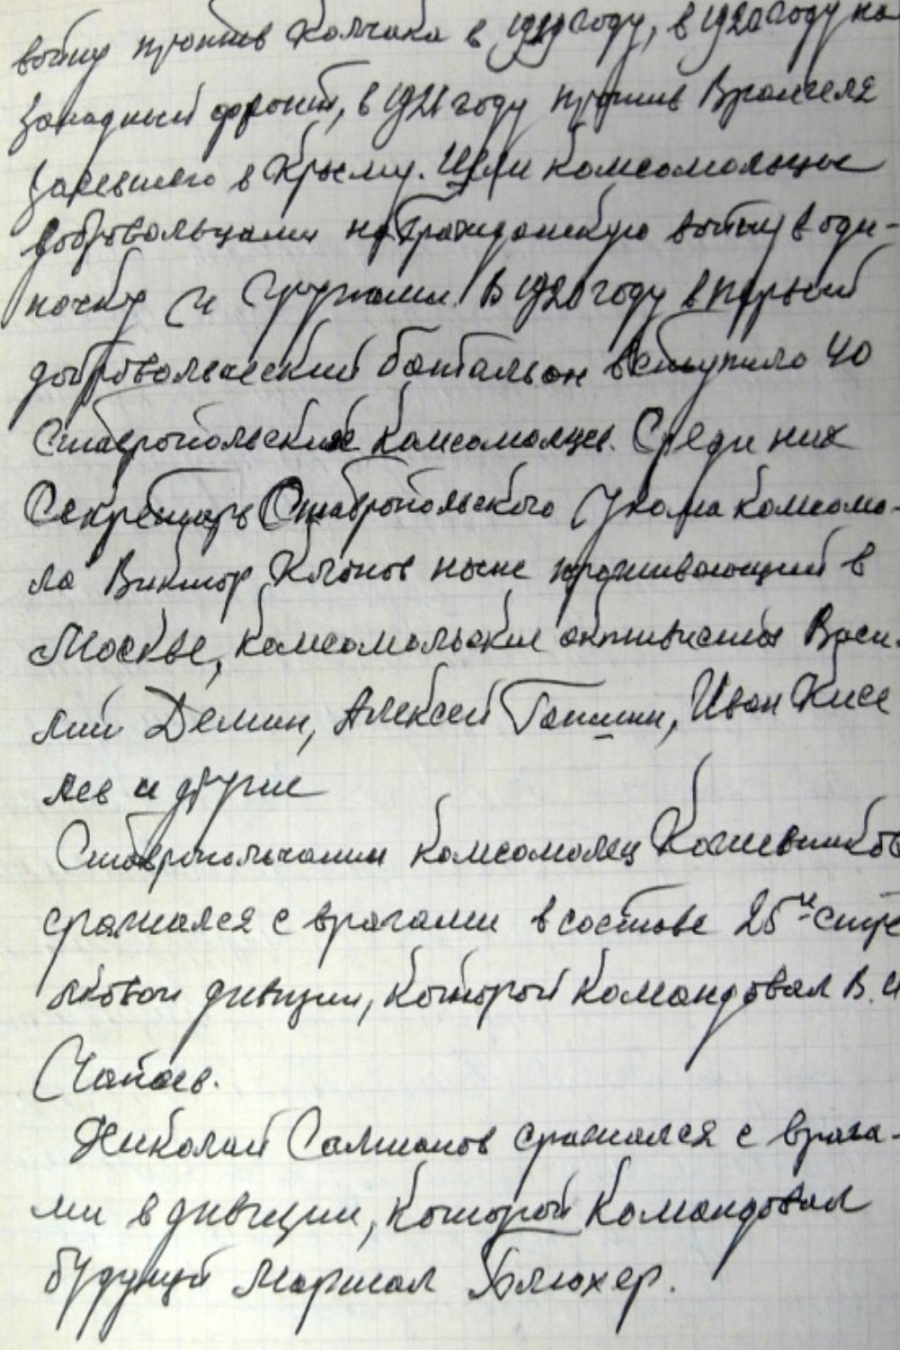 войну против Колчака в 1919 году, в 1920 году на
западный фронт, в 1921 году против Врангеля
засевшего в Крыму. Шли комсомольцы
добровольцами на гражданскую войну в оди-
ночку и группами. В 1920 году в первый
добровольческий батальон вступило 40
Ставропольских комсомольцев. Среди них
Секретарь Ставропольского Укома комсомо-
ла Виктор ныне проживающий в
Москве, комсомольские активисты Васи-
лий Демин, Алексей Гапшин, Иван Кисе
лев и другие
Ставропольчанин комсомолец Кожевников
сражался с врагами в составе 25й стре
лковой дивизии, которой командовал В. И
Чапаев.
Николай Салманов сражался с врага-
ми в дивизии, которой командовал
будущий Маршал Блюхер.